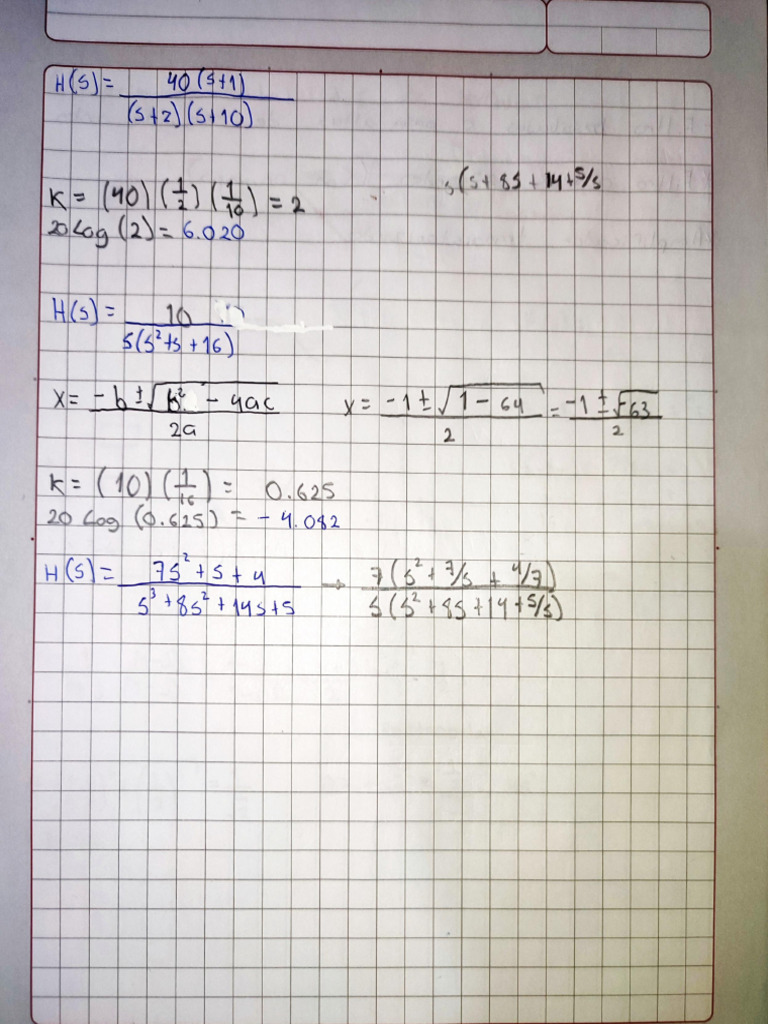 H(s) = 40(s+1) / (s+2)(s+10)
s(s + 8s + 14 + 5/s
K = (40)(1/2)(1/10) = 2
20 Log (2) = 6.020
H(s) = 10 / s(s²+s+16)
x = -b ± √b² - 4ac / 2a
x = -1 ± √1 - 64 / 2 = -1 ± √-63 / 2
K = (10)(1/16) = 0.625
20 Log (0.625) = -4.082
H(s) = 7s²+s+4 / s³+8s²+14s+5 → 7(s² + 7/s + 4/7) / s(s²+8s+14+5/s)